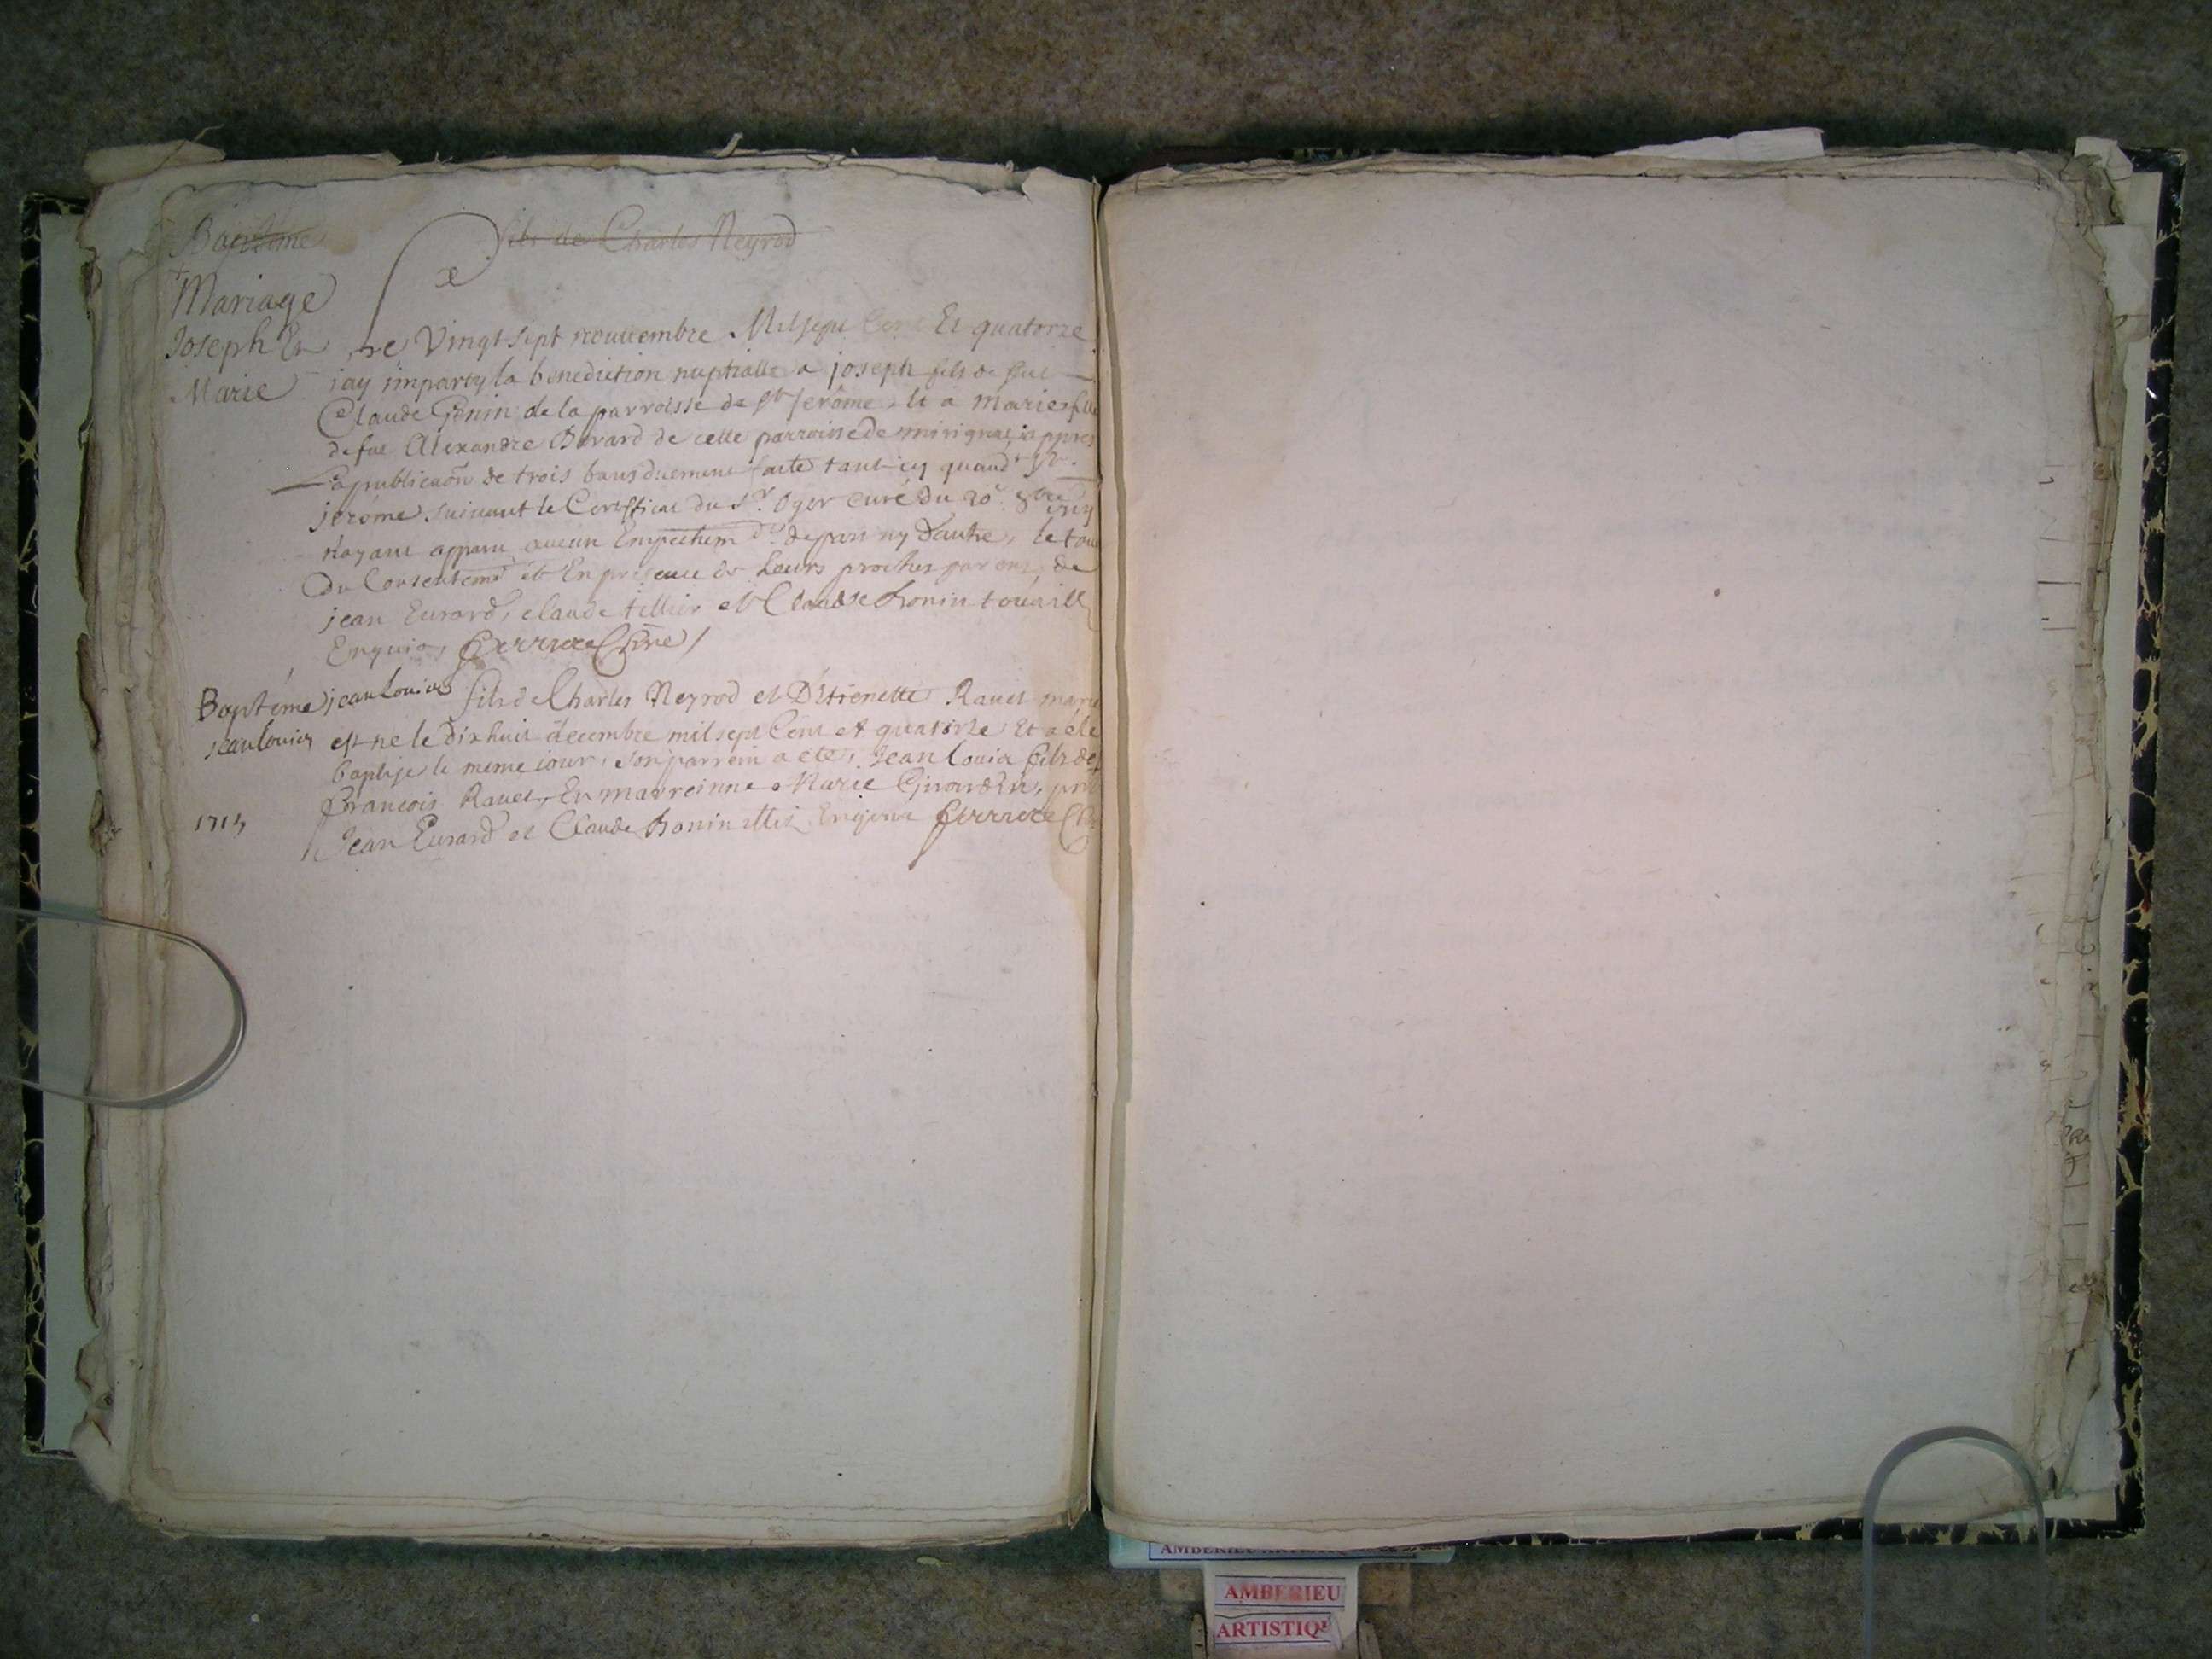 Baptême
fils de Charles Neyrod
Mariage
Joseph Et
Marie
Le Vingt sept nouvembre Mil sept Cent Et quatorze
jay imparty la benediction nuptialle a joseph fils de feu
Claude Genin de la parroisse de St Jerôme, et a marie fille
de feu Alexandre Bevard de celle parroisse de mirignat, appres
la publicaôn de trois bans duement faite tant icy quaud. St.
jerôme suivant le Certificat du Sr. Oger curé du 20e 8bre
Nayant apparu aucun Empechem de part ny Dautre, le tout
Du Consentemt et En presence de Leurs proches parens, de
jean Eurard, claude tillier et Claude bonin
Enquis, Ferriere Curé
Baptéme
jean Louis fils de Charles Neyrod et D'Etienette Ravet mariés
jean louis
est ne le dix huit décembre mil sept Cent et quatorze Et a été
baptisé le meme jour, son parrein a été, Jean Louis fils de
François Ravet, Et marreinne Marie Girardin,
1715
Jean Eurard et Claude bonin Enquis Ferriere
AMBERIEU
ARTISTIQ